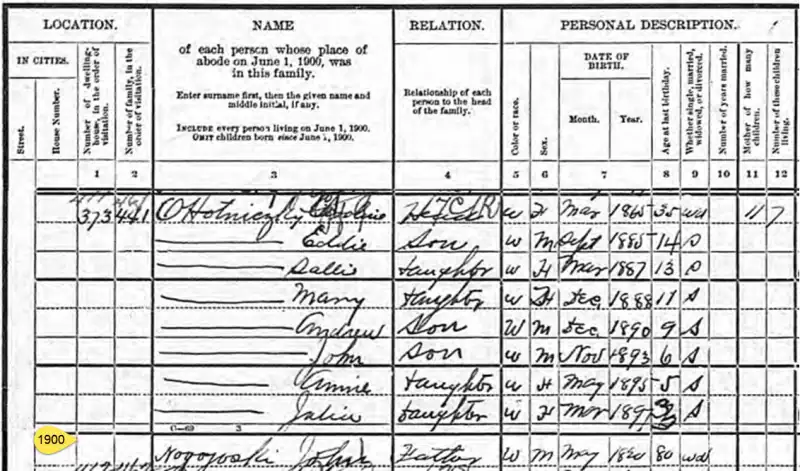 LOCATION. NAME RELATION. PERSONAL DESCRIPTION.
IN CITIES.
Street.
House Number.
Number of dwelling-house, in the order of visitation.
Number of family, in the order of visitation.
of each person whose place of
abode on June 1, 1900, was
in this family.
Enter surname first, then the given name and
middle initial, if any.
INCLUDE every person living on June 1, 1900.
OMIT children born since June 1, 1900.
Relationship of each
person to the head
of the family.
Color or race.
Sex.
DATE OF
BIRTH.
Month. Year.
Age at last birthday.
Whether single, married, widowed, or divorced.
Number of years married.
Mother of how many children.
Number of these children living.
1 2 3 4 5 6 7 8 9 10 11 12
373 441 OHotniczky Head W F Mar 1865 35 wd 11 7
Eddie Son W M Sept 1885 14 S
Sallie daughter W F Mar 1887 13 S
Mary daughter W F Dec 1888 11 S
Andrew Son W M Dec 1890 9 S
John Son W M Nov 1893 6 S
Annie daughter W F May 1895 5 S
Julia daughter W F Mar 1897 S
1900
John Father W M May 80 wd